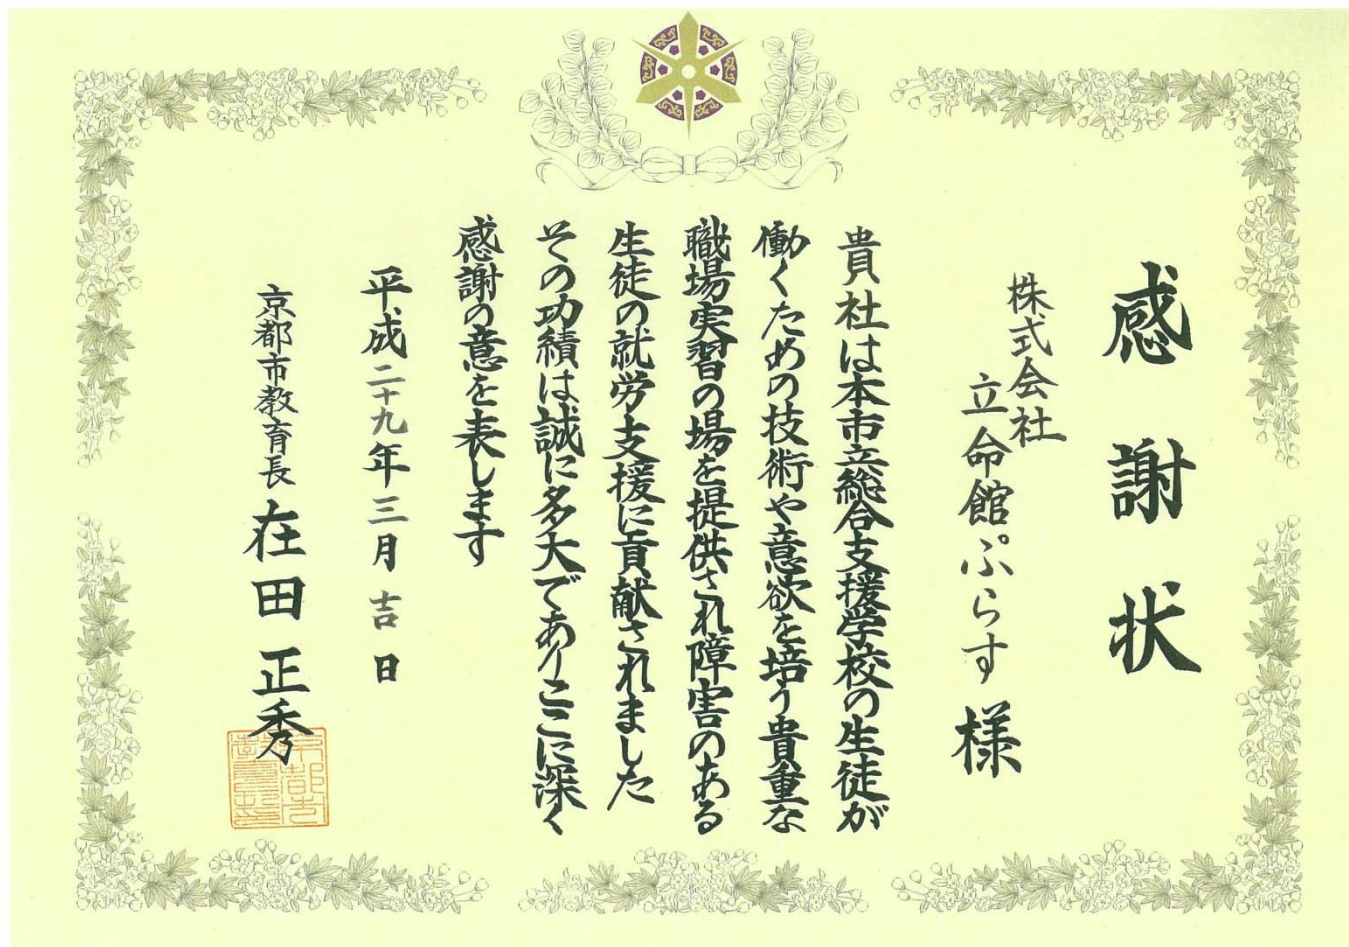 感謝状
株式会社
立命館ぷらす 様
貴社は本市立総合支援学校の生徒が
働くための技術や意欲を培う貴重な
職場実習の場を提供され障害のある
生徒の就労支援に貢献されました
その功績は誠に多大でありここに深く
感謝の意を表します
平成二十九年三月吉日
京都市教育長 在田正秀